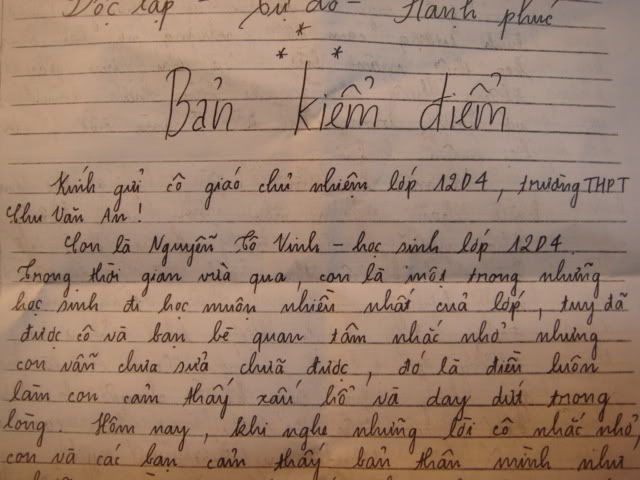 Độc lập - Tự do - Hạnh phúc
* * *
Bản kiểm điểm
Kính gửi cô giáo chủ nhiệm lớp 12D4, trường THPT
Chu Văn An!
Con là Nguyễn Tô Vinh - học sinh lớp 12D4.
Trong thời gian vừa qua, con là một trong những
học sinh đi học muộn nhiều nhất của lớp, tuy đã
được cô và bạn bè quan tâm nhắc nhở nhưng
con vẫn chưa sửa chữa được, đó là điều luôn
làm con cảm thấy xấu hổ và day dứt trong
lòng. Hôm nay, khi nghe những lời cô nhắc nhở,
con và các bạn cảm thấy bản thân mình như